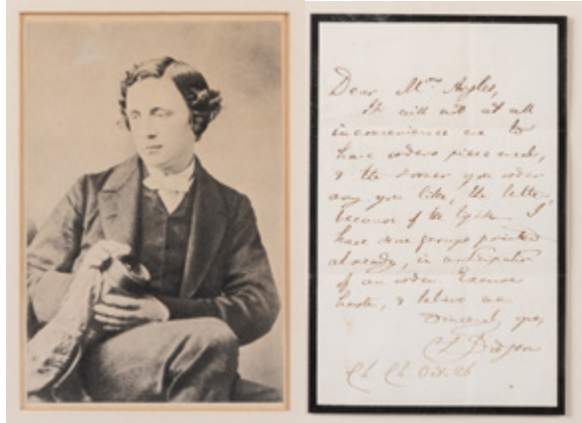 Dear Mrs
It will not at all
inconvenience me to
have orders piecemeal,
& the sooner you order
any you like, the better,
because of the light. I
have some groups printed
already, in anticipation
of an order. Excuse
haste, & believe me
Sincerely yrs,
C L Dodgson
Ch. Ch. Oct. 26